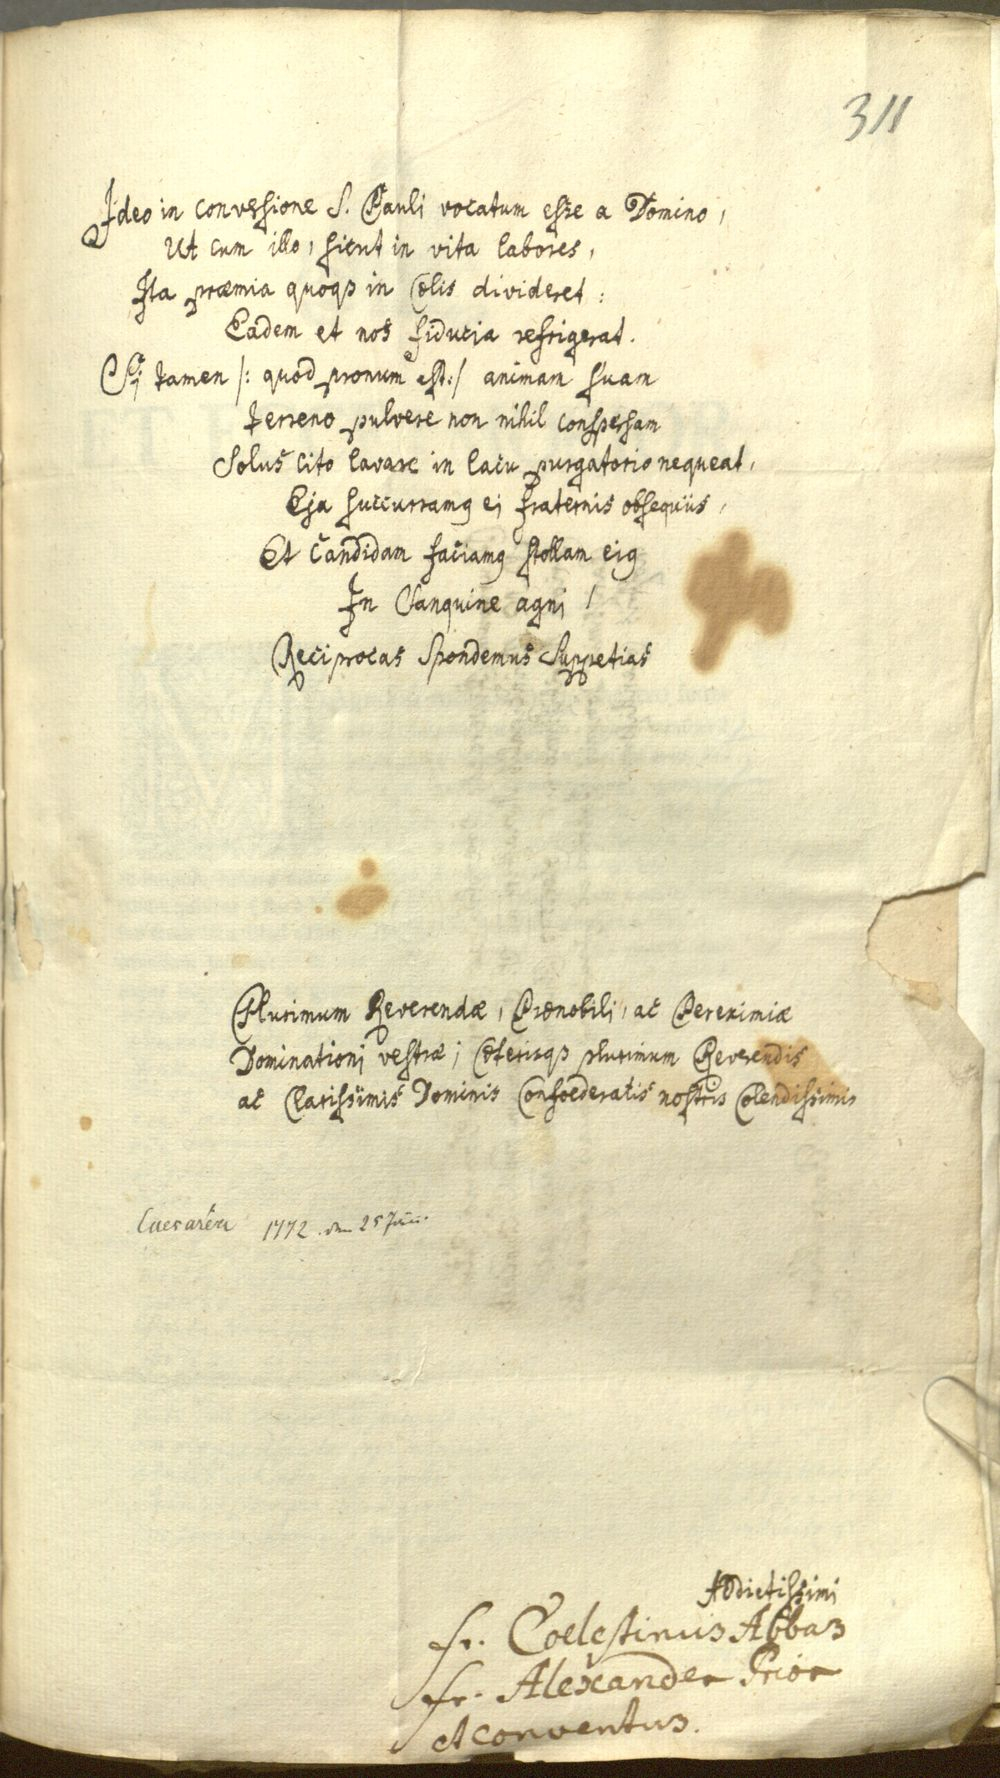 311
Ideo in conversione S. Pauli vocatum esse a Domino,
Ut cum illo, sicut in vita labores,
Ita præmia quoqꝫ in Cœlis divideret:
Eadem et nos fiducia refrigerat.
Si tamen /: quod pronum est :/ animam suam
terreno pulvere non nihil conspersam
Solus cito lavare in lacu purgatorio nequeat,
Eja succurramꝰ ei fraternis obsequiis,
Et Candidam faciamꝰ stollam eiꝰ
In Sanguine agni!
Reciprocas Spondemus Suppetias
Plurimum Reverendæ, Prænobili, ac Pereximiæ
Dominationi vestræ, Cœterisqꝫ plurimum Reverendis
ac Clarissimis Dominis Confoederatis nostris Colendissimis
Caesareæ 1772. den 25 Juni.
Addictissimi
fr. Coelestinus Abbas
fr. Alexander Prior
et conventus.